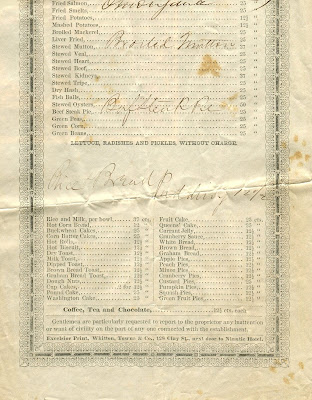 Fried Salmon, 25 "
Fried Smelts, 25 "
Fried Potatoes, 12½ "
Mashed Potatoes, 12½ "
Broiled Mackerel, 25 "
Liver Fried, 25 "
Stewed Mutton, 25 "
Broiled Mutton
Stewed Veal, 25 "
Stewed Heart, 25 "
Stewed Beef, 25 "
Stewed Kidneys, 25 "
Stewed Tripe, 25 "
Dry Hash, 25 "
Fish Balls, 25 "
Stewed Oysters, 25 "
Beef Steak Pie
Beef Steak Pie, 25 "
Green Peas, 25 "
Green Corn, 25 "
Green Beans, 25 "
LETTUCE, RADISHES AND PICKLES, WITHOUT CHARGE.
Bread Pudding
Rice and Milk, per bowl, cts.
Hot Corn Bread,
Buckwheat Cakes,
Corn Batter Cakes,
Hot Rolls,
Hot Biscuit,
Dry Toast,
Milk Toast,
Dipped Toast,
Brown Bread Toast,
Graham Bread Toast,
Dough Nuts,
Cup Cakes, 2 for
Pound Cake,
Washington Cake,
Fruit Cake, 25 cts.
Queens' Cake,
Currant Jelly,
Cranberry Sauce,
White Bread,
Brown Bread,
Graham Bread,
Apple Pies,
Peach Pies,
Mince Pies,
Cranberry Pies,
Custard Pies,
Pumpkin Pies,
Squash Pies,
Green Fruit Pies,
Coffee, Tea and Chocolate, 12½ cts. each
Gentlemen are particularly requested to report to the proprietor any inattention
or want of civility on the part of any one connected with the establishment.
Excelsior Print, Whitton, Towne & Co., 128 Clay St., next door to Niantic Hotel.